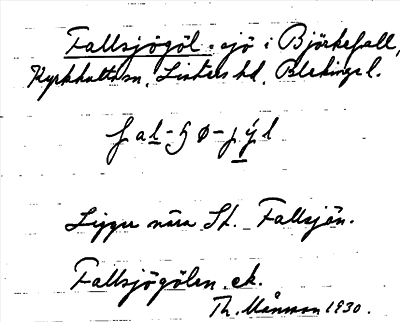 Fallsjögöl. sjö i Björkefall,
Kyrkhults sn, Listers hd, Blekinge l.
Ligger nära St. Fallsjön.
Fallsjögölen. ek.
Th. Månsson 1930.